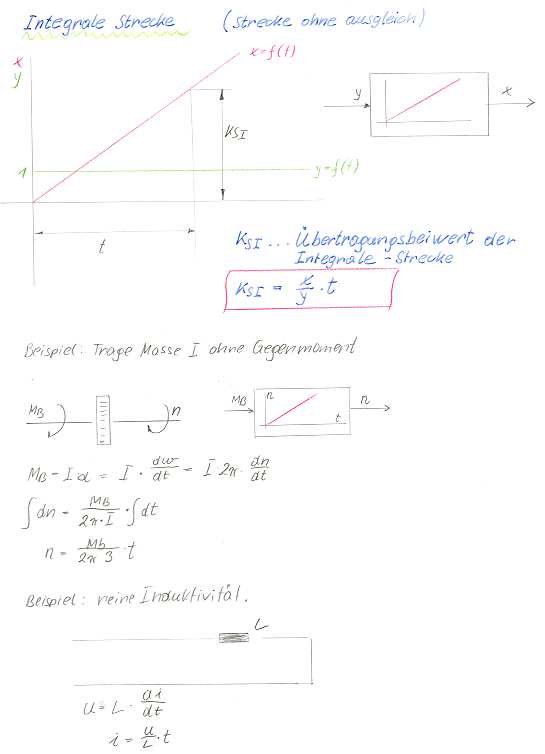 Integrale Strecke (Strecke ohne ausgleich)
x
y
x=f(t)
y
x
KSI
1
y=f(t)
t
KSI ... Übertragungsbeiwert der
Integrale-Strecke
KSI = x/y · t
Beispiel: Trage Masse I ohne Gegenmoment
MB
n
MB
n
t
n
MB = I α = I · dω/dt = I 2π · dn/dt
∫ dn = MB/2π·I · ∫ dt
n = Mb/2π 3 · t
Beispiel: reine Induktivität.
L
u = L · di/dt
i = u/L · t